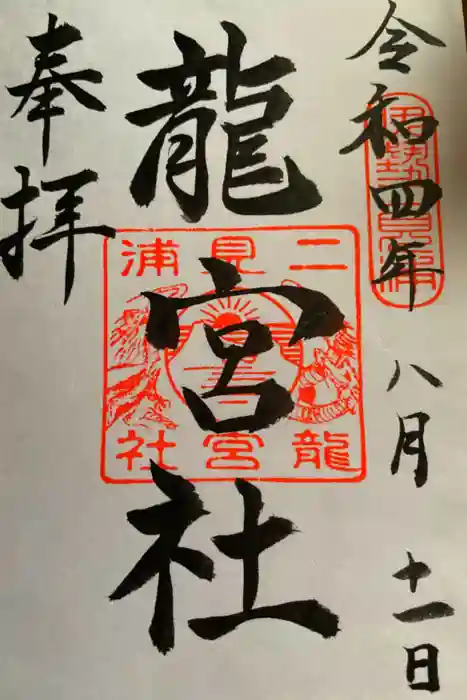 令和四年 八月 十一日
龍宮社
二見浦
龍宮社
奉拝